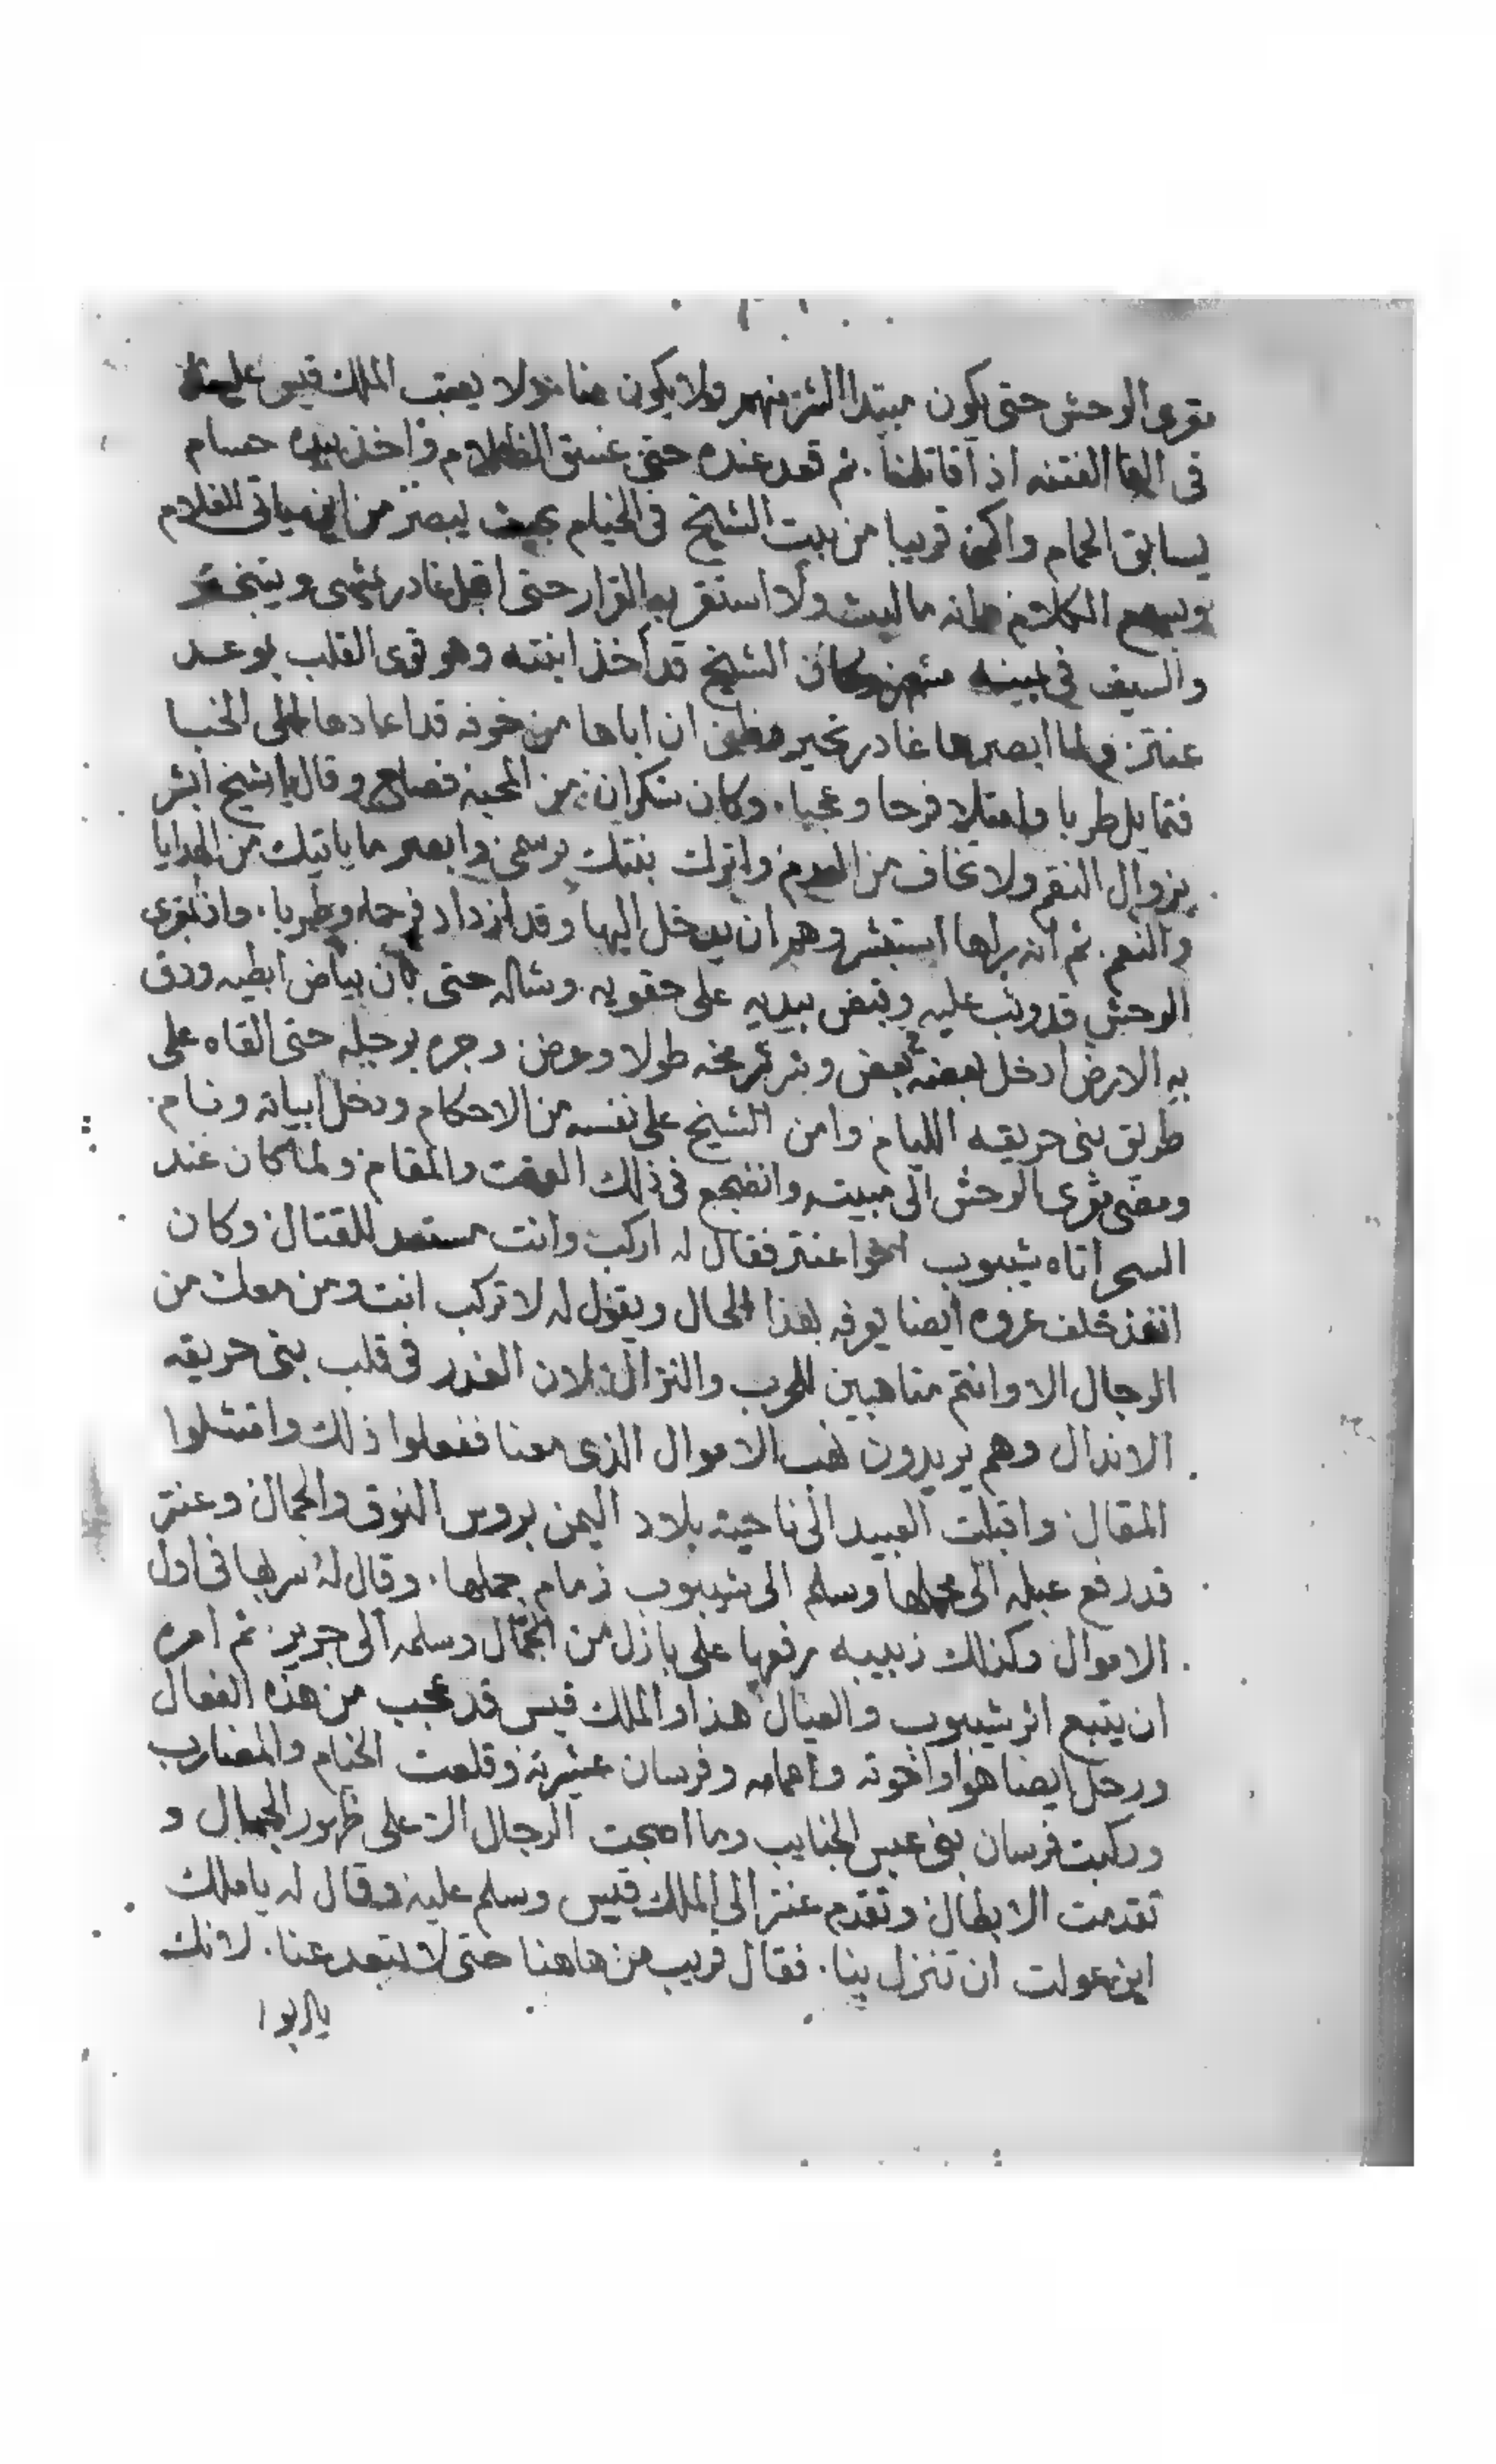 مقرى الوحش حتى يكون مبتدا الشر منهم ولا يكون منا ولا يعتب الملك قيس علينا
فى القا الفتنه اذ اقاتلنا . ثم قعد عنده حتى غسق الظلام واخذ بيده حسام
يسابق الحمام واكمن قريبا من بيت الشيخ فى الخيام بحيث يبصر من اين ياتى الغلام
ويسمع الكلام فانه ما لبث ولا استقر به القرار حتى اقبل غادر يمشى ويتبختر
والسيف فى يمينه مشهر وكان الشيخ قد اخذ ابنته وهو قوى القلب بوعد
عنتر ولما ابصرها غادر تحير وظن ان اباها من خوفه قد اعادها الى الخبا
فتمايل طربا وامتلا فرحا وعجبا . وكان سكران من المحبه فصاح وقال يا شيخ ابشر
بزوال النقم ولا تخاف من العدم واترك بنتك برسمى وابصر ما ياتيك من الهدايا
والنعم . ثم انه براها استبشر وهم ان يدخل اليها وقد ازداد فرحا وطربا . واذ بمقرى
الوحش قد وثب عليه وقبض بيديه على حقويه . وشاله حتى بان بياض ابطيه ودق
به الارض ادخل بعضه بعض ونثر مخه طولا وعرض وجره برجله حتى القاه على
طريق بنى حريقه الليام وامن الشيخ على نفسه من الاحكام ودخل ابياته ونام .
ومضى مقرى الوحش الى مبيته وانضجع فى ذلك الوقت والمقام ولما كان عند
السحر اتاه شيبوب اخوا عنتر فقال له اركب وانت مستعد للقتال وكان
انفذ خلف عروه ايضا يعرفه بهذا الحال ويقول له لا تركب انت ومن معك من
الرجال الا وانتم متاهبين للحرب والنزال لان الغدر فى قلب بنى حريقه
الاندال وهم يريدون نهب الاموال الذى معنا ففعلوا ذلك وامتثلوا
المقال واقبلت العبيد الى ناحية بلاد اليمن بروس النوق والجمال وعنتر
قد رفع عبله الى محملها وسلم الى شيبوب زمام جملها . وقال له سر بها فى اول
الاموال وكذلك زبيبه رفعها على بازل من الجمال وسلمه الى جرير . ثم امره
ان يتبع اثر شيبوب والعيال هذا والملك قيس قد عجب من هذه الفعال
ورحل ايضا هوا واخوته واعمامه وفرسان عشيرته وقلعت الخيام والمضارب
وركبت فرسان بنى عبس الجنايب وما اصبحت الرجال الا على ظهور الجمال و
تقدمت الابطال وتقدم عنتر الى الملك قيس وسلم عليه وقال له يا ملك
اين عولت ان تنزل بنا . فقال قريب من هاهنا حتى لا تبعد عنا . لانك